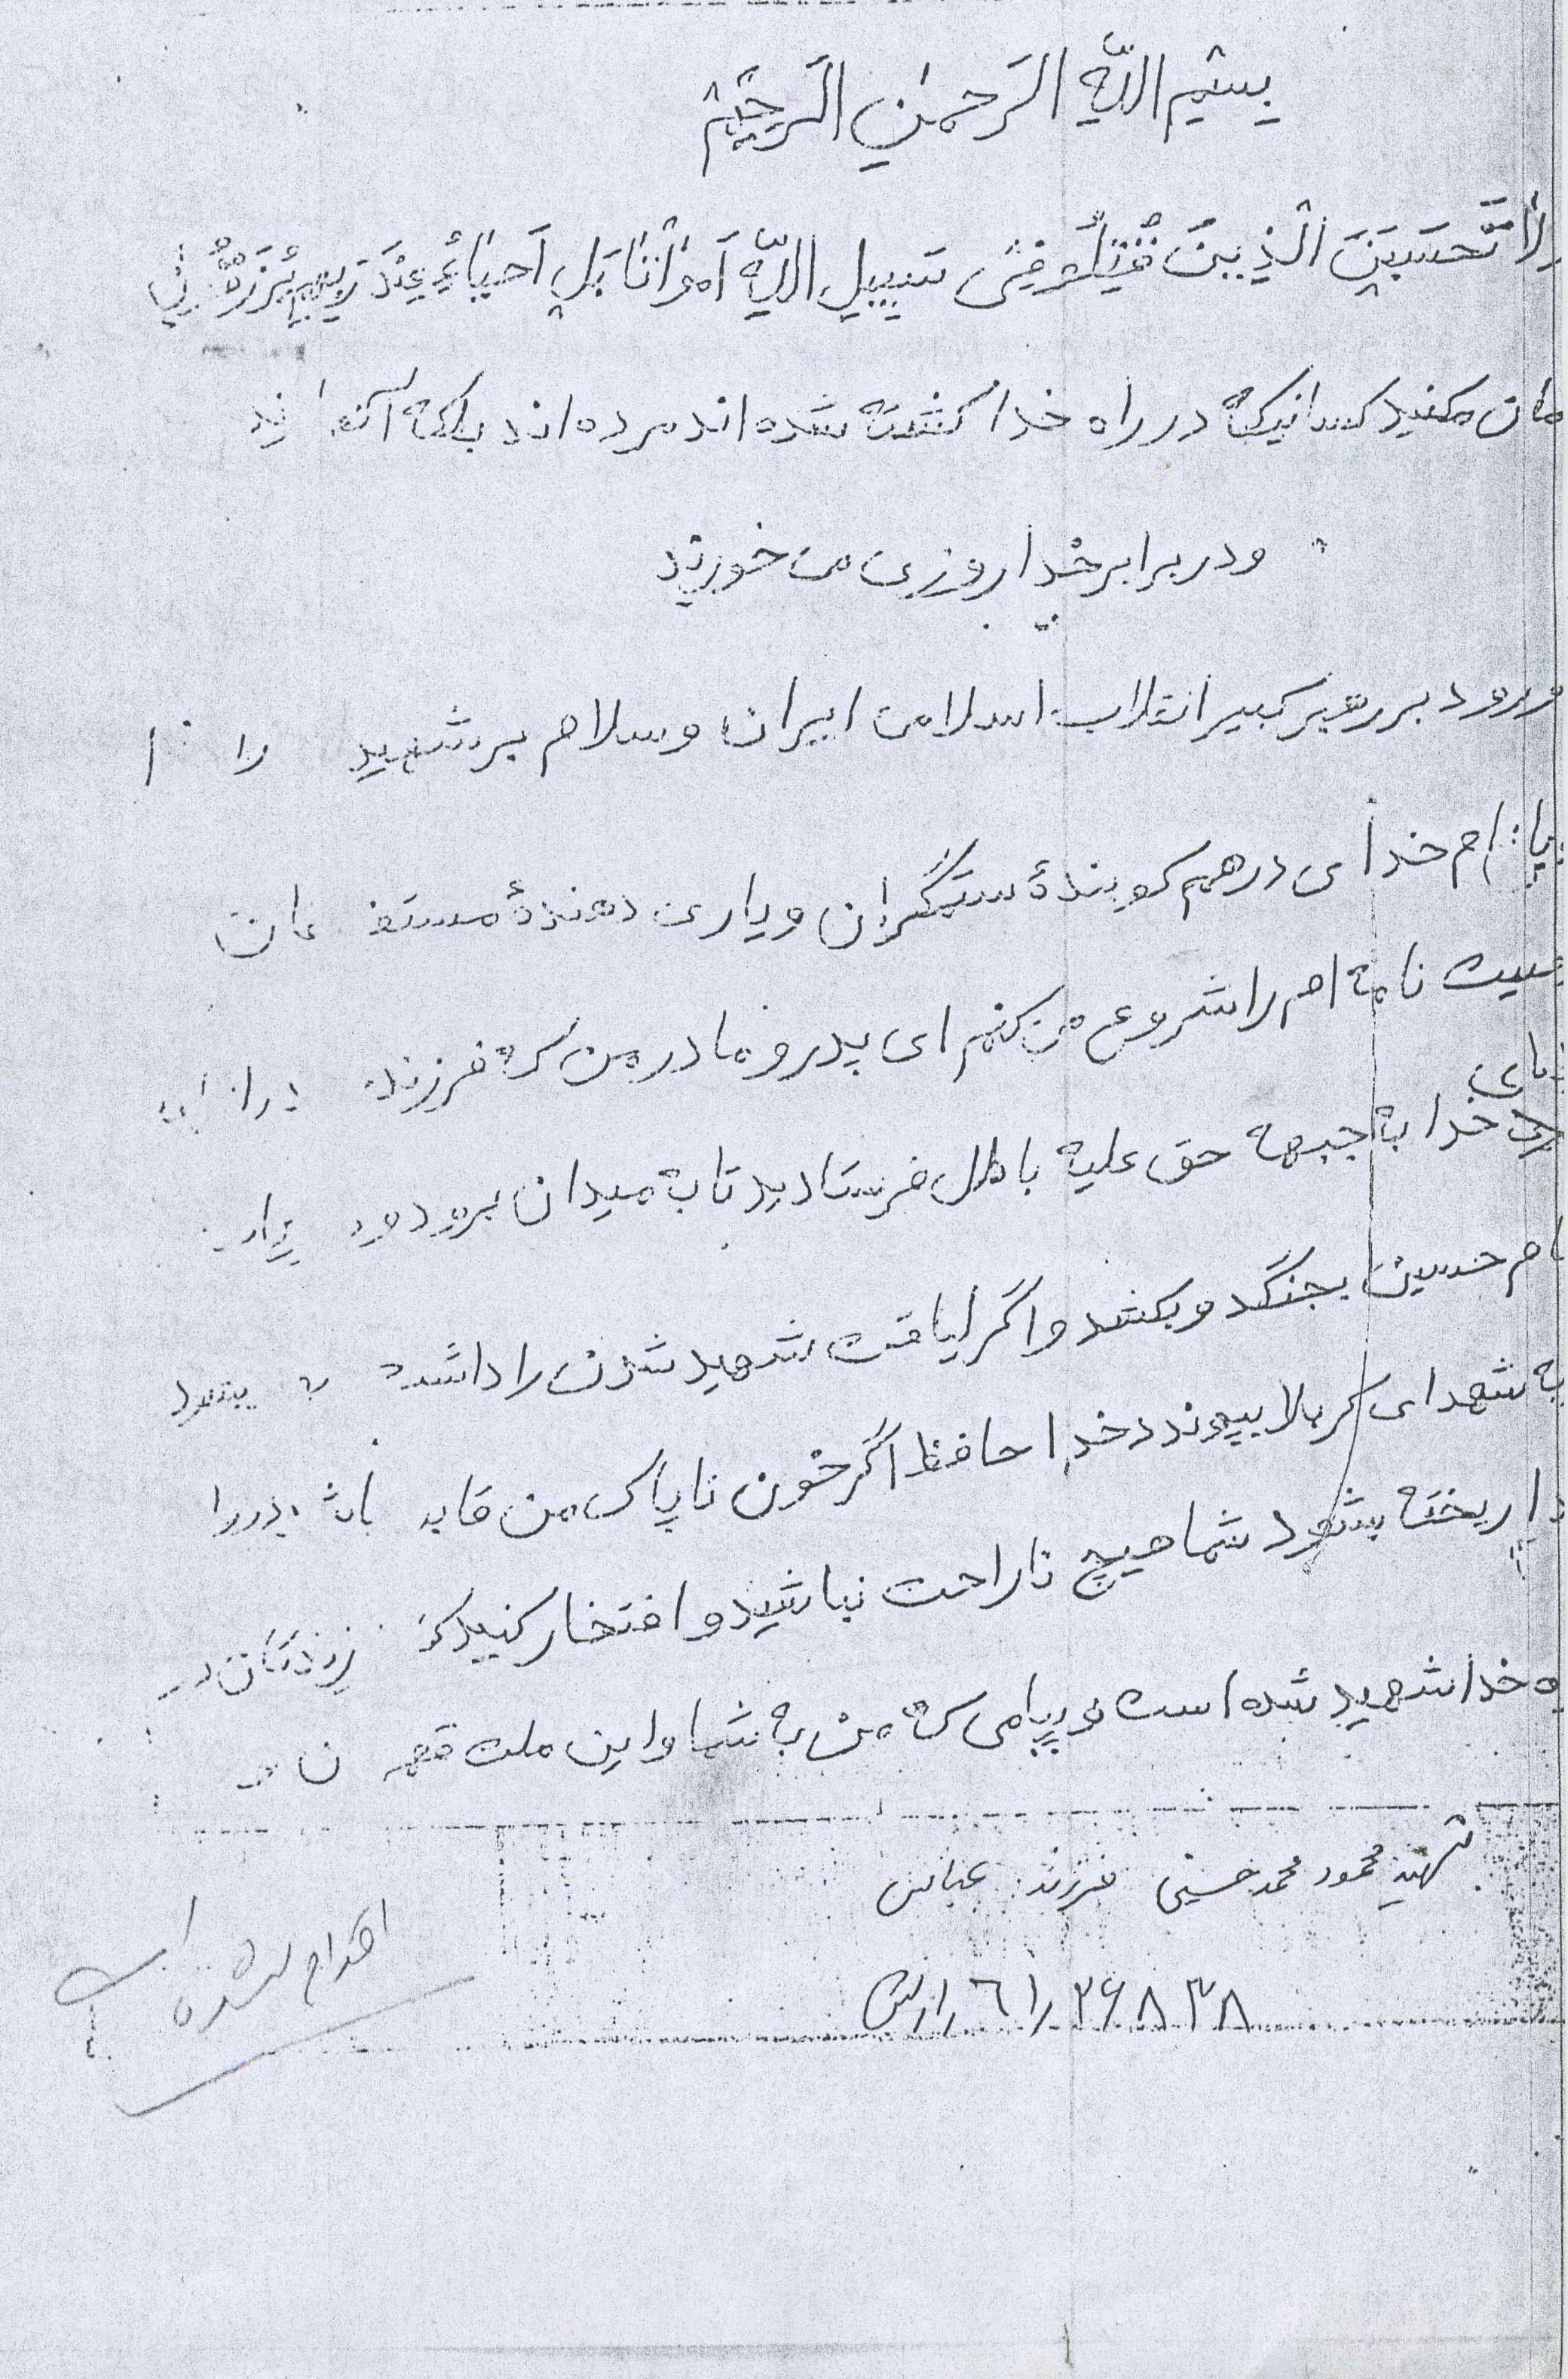 بِسْمِ اللّهِ الرَحمٰنِ الرَحیْمْ
لا تَحسَبَنَ الَّذِینَ قُتِلُو فِی سَبیلِ اللّهِ اَمْواتاً بَلِ اَحیاءُ عِنْدَ رَبِهِم یُرزَقُونَ
مان مکنید کسانیکه در راه خدا کشته شده اند مرده اند بلکه آنها
و در برابر خدا روزی می خورند
درود بر رهبر کبیر انقلاب اسلامی ایران و سلام بر شهید
خدای درهم کوبندهٔ ستمگران و یاری دهندهٔ مستضعفان
صیت نامه ام را شروع می کنم ای پدر و مادر من که فرزند
خدا به جبهه حق علیه باطل فرستادید تا به میدان برود
ام حسین بجنگد و بکشد و اگر لیاقت شهید شدن را داشت
به شهدای کربلا بپیوندد خدا حافظ اگر خون ناپاک من
ریخته بشود شما هیچ ناراحت نباشید و افتخار کنید که فرزندتان در
ه خدا شهید شده است و پیامی که من به شما و این ملت
شهید محمود محمدحسینی فرزند عباس
اقدام شده است